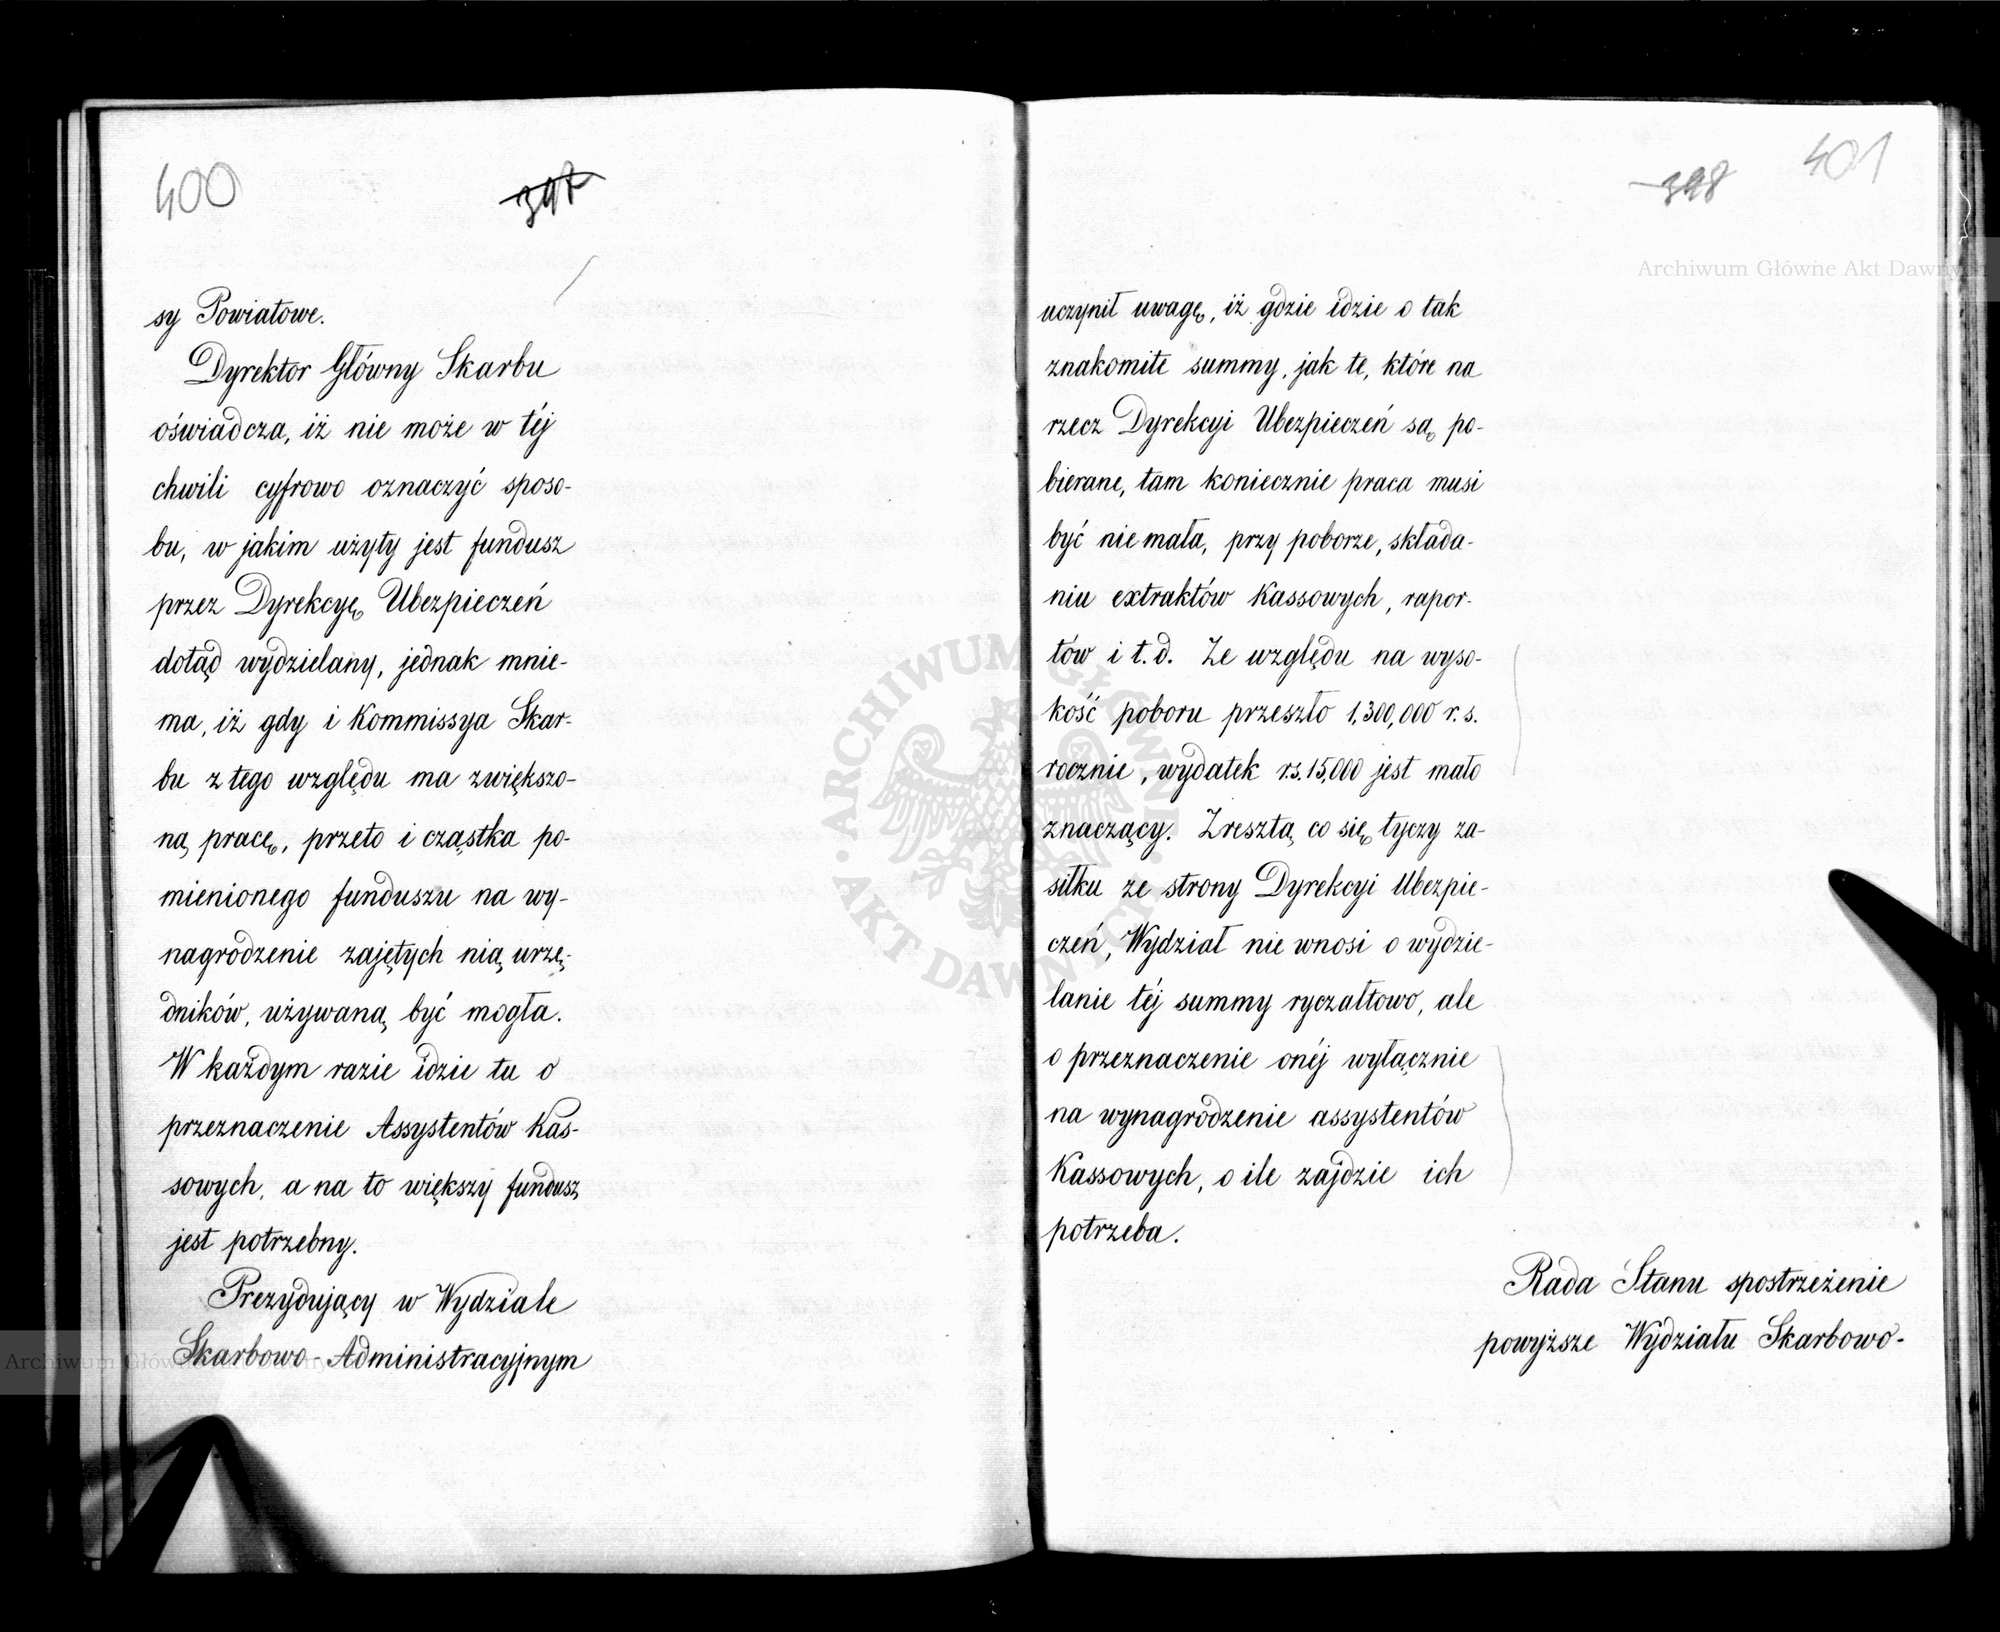 400
397
sy Powiatowe.
Dyrektor Główny Skarbu
oświadcza, iż nie może w téj
chwili cyfrowo oznaczyć sposo-
bu, w jakim użyty jest fundusz
przez Dyrekcyę Ubezpieczeń
dotąd wydzielany, jednak mnie-
ma, iż gdy i Kommissya Skar-
bu z tego względu ma zwiększo-
ną pracę, przeto i cząstka po-
mienionego funduszu na wy-
nagrodzenie zajętych nią urzę-
dników, używaną być mogła.
W każdym razie idzie tu o
przeznaczenie Assystentów Kas-
sowych, a na to większy fundusz
jest potrzebny.
Prezydujący w Wydziale
Skarbowo-Administracyjnym
398
401
Archiwum Główne Akt Dawnych
uczynił uwagę, iż gdzie idzie o tak
znakomite summy, jak te, które na
rzecz Dyrekcyi Ubezpieczeń są po-
bierane, tam koniecznie praca musi
być nie mała, przy poborze, składa-
niu extraktów Kassowych, rapor-
tów i t.d. Ze względu na wyso-
kość poboru przeszło 1,300,000 r.s.
rocznie, wydatek rs. 15,000 jest mało
znaczący. Zresztą co się tyczy za-
siłku ze strony Dyrekcyi Ubezpie-
czeń, Wydział nie wnosi o wydzie-
lanie téj summy ryczałtowo, ale
o przeznaczenie onéj wyłącznie
na wynagrodzenie assystentów
Kassowych, o ile zajdzie ich
potrzeba.
Rada Stanu spostrzeżenie
powyższe Wydziału Skarbowo-
ARCHIWUM GŁÓWNE AKT DAWNYCH
Archiwum Główne Akt Dawnych